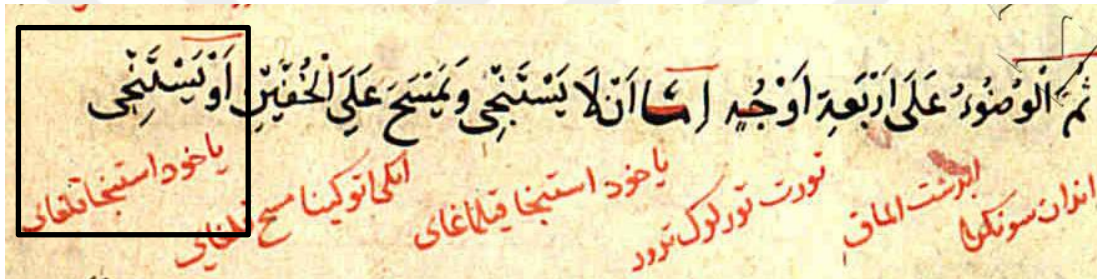 ثُمَّ الْوُضُوءُ عَلَى اَرْبَعَةِ اَوْجُهٍ اِمَّا اَنْ لَا يَسْتَنْجِى وَيَمْسَحَ عَلَى الْخُفَّيْنِ اَوْ يَسْتَنْجِى
اندان سونكرا ابدست الماق تورت تورلوك تورور يا خود استنجا قيلماغاى ايكى اتوكينا مسح قلغاى يا خود استنجا قلغاى